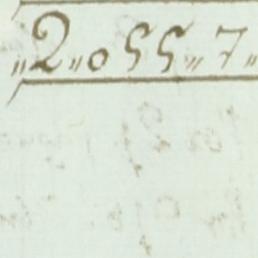 „2„055„7„